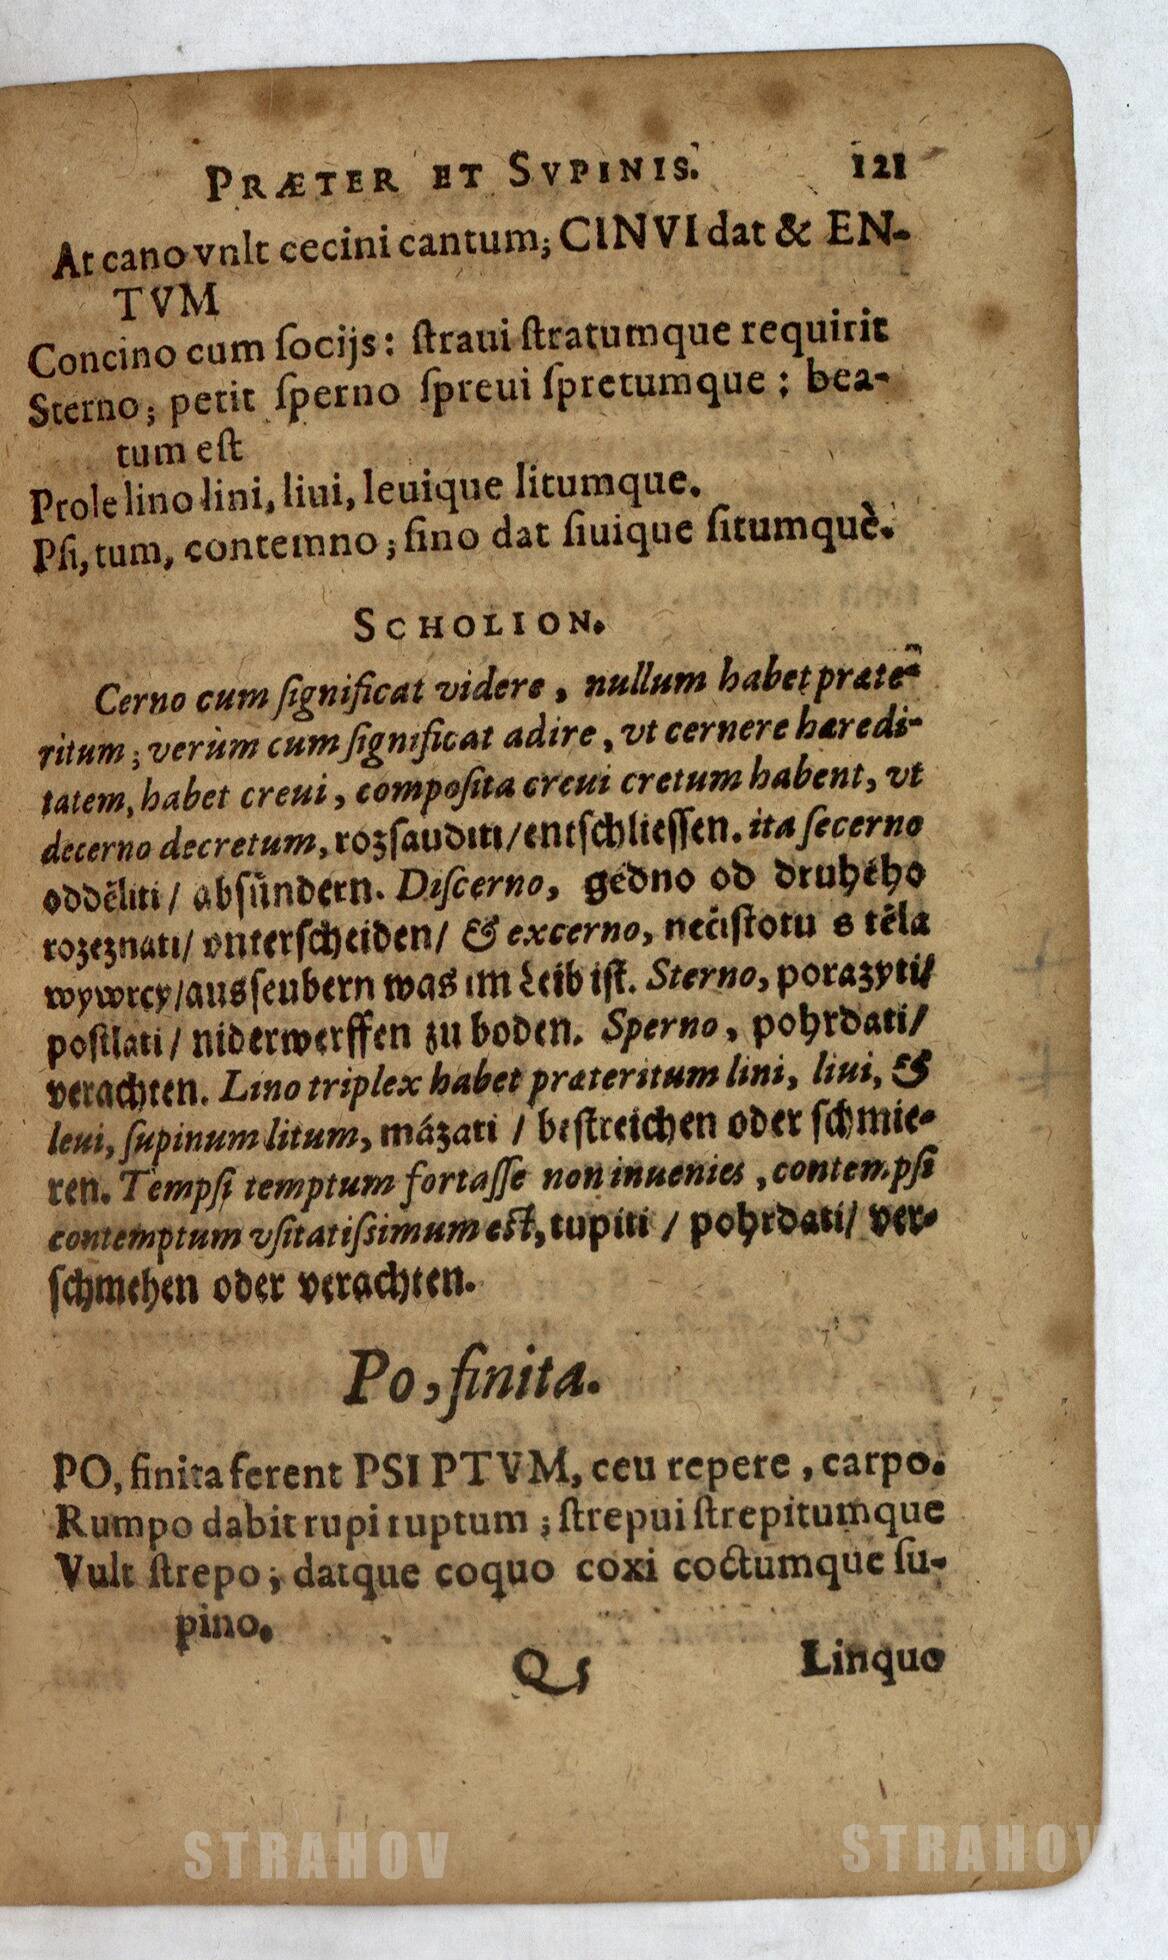 PRÆTER ET SVPINIS. 121
At cano vult cecini cantum; CINVI dat & EN-
TVM
Concino cum ſocijs: ſtraui ſtratumque requirit
Sterno; petit ſperno ſpreui ſpretumque: bea-
tum eſt
Prole lino lini, liui, leuique litumque.
Pſi, tum, contemno; ſino dat ſiuique ſitumquè.
SCHOLION.
Cerno cum ſignificat videre, nullum habet præte-
ritum; verùm cum ſignificat adire, vt cernere hæredi-
tatem, habet creui, compoſita creui cretum habent, vt
decerno decretum, rozſauditi/entſchlieſſen. ita ſecerno
odděliti/ abſündern. Diſcerno, gedno od druhého
rozeznati/ vnterſcheiden/ & excerno, nečiſtotu s těla
wywrcy/ausſeubern was im Leib iſt. Sterno, porazyti/
poſtlati/ niderwerffen zu boden. Sperno, pohrdati/
verachten. Lino triplex habet præteritum lini, liui, &
leui, ſupinum litum, mázati / beſtreichen oder ſchmie-
ren. Tempſi temptum fortaſſe non inuenies, contempſi
contemptum vſitatiſsimum eſt, tupiti / pohrdati/ ver-
ſchmehen oder verachten.
Po, finita.
PO, finita ferent PSI PTVM, ceu repere, carpo.
Rumpo dabit rupi ruptum; ſtrepui ſtrepitumque
Vult ſtrepo; datque coquo coxi coctumque ſu-
pino.
Q 5 Linquo
STRAHOV STRAHOV